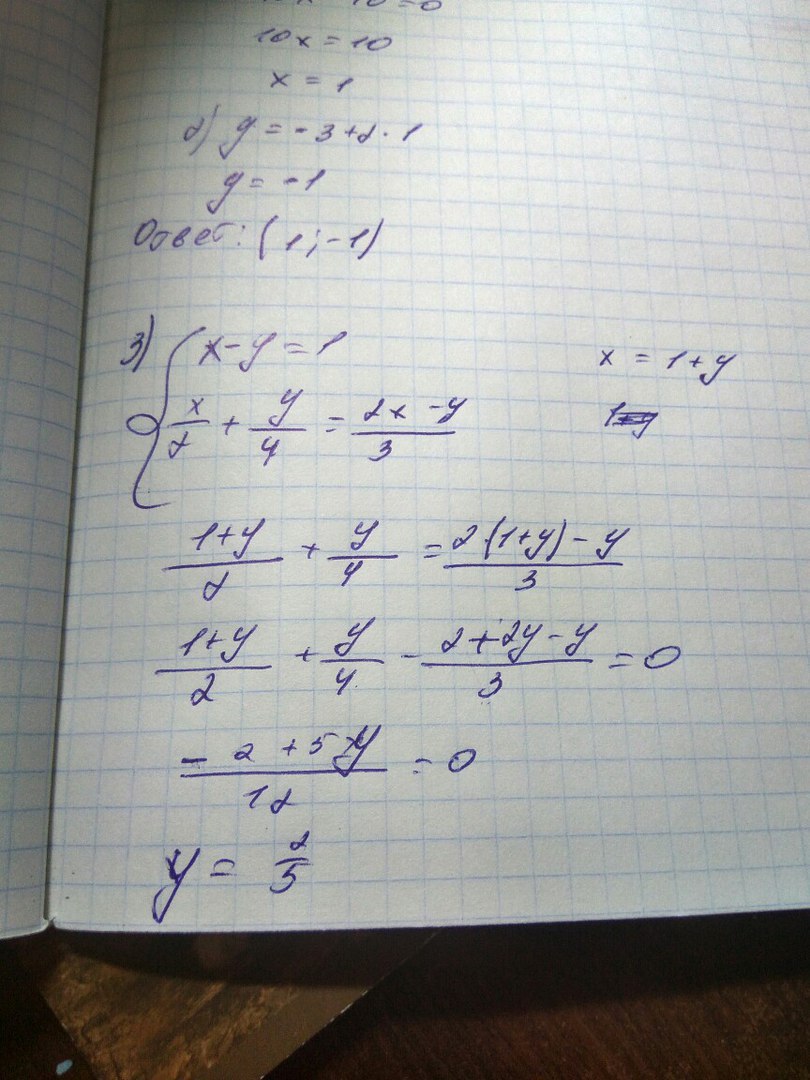 10x = 10
x = 1
2) y = -3+2·1
y = -1
Ответ: (1; -1)
3) { x-y=1
x = 1+y
x/2 + y/4 = (2x-y)/3
(1+y)/2 + y/4 = (2(1+y)-y)/3
(1+y)/2 + y/4 - (2+2y-y)/3 = 0
(-2+5y)/12 = 0
y = 2/5